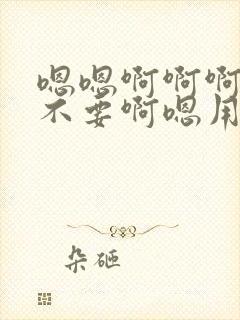 嗯嗯啊啊啊
不要啊嗯用
朵砸